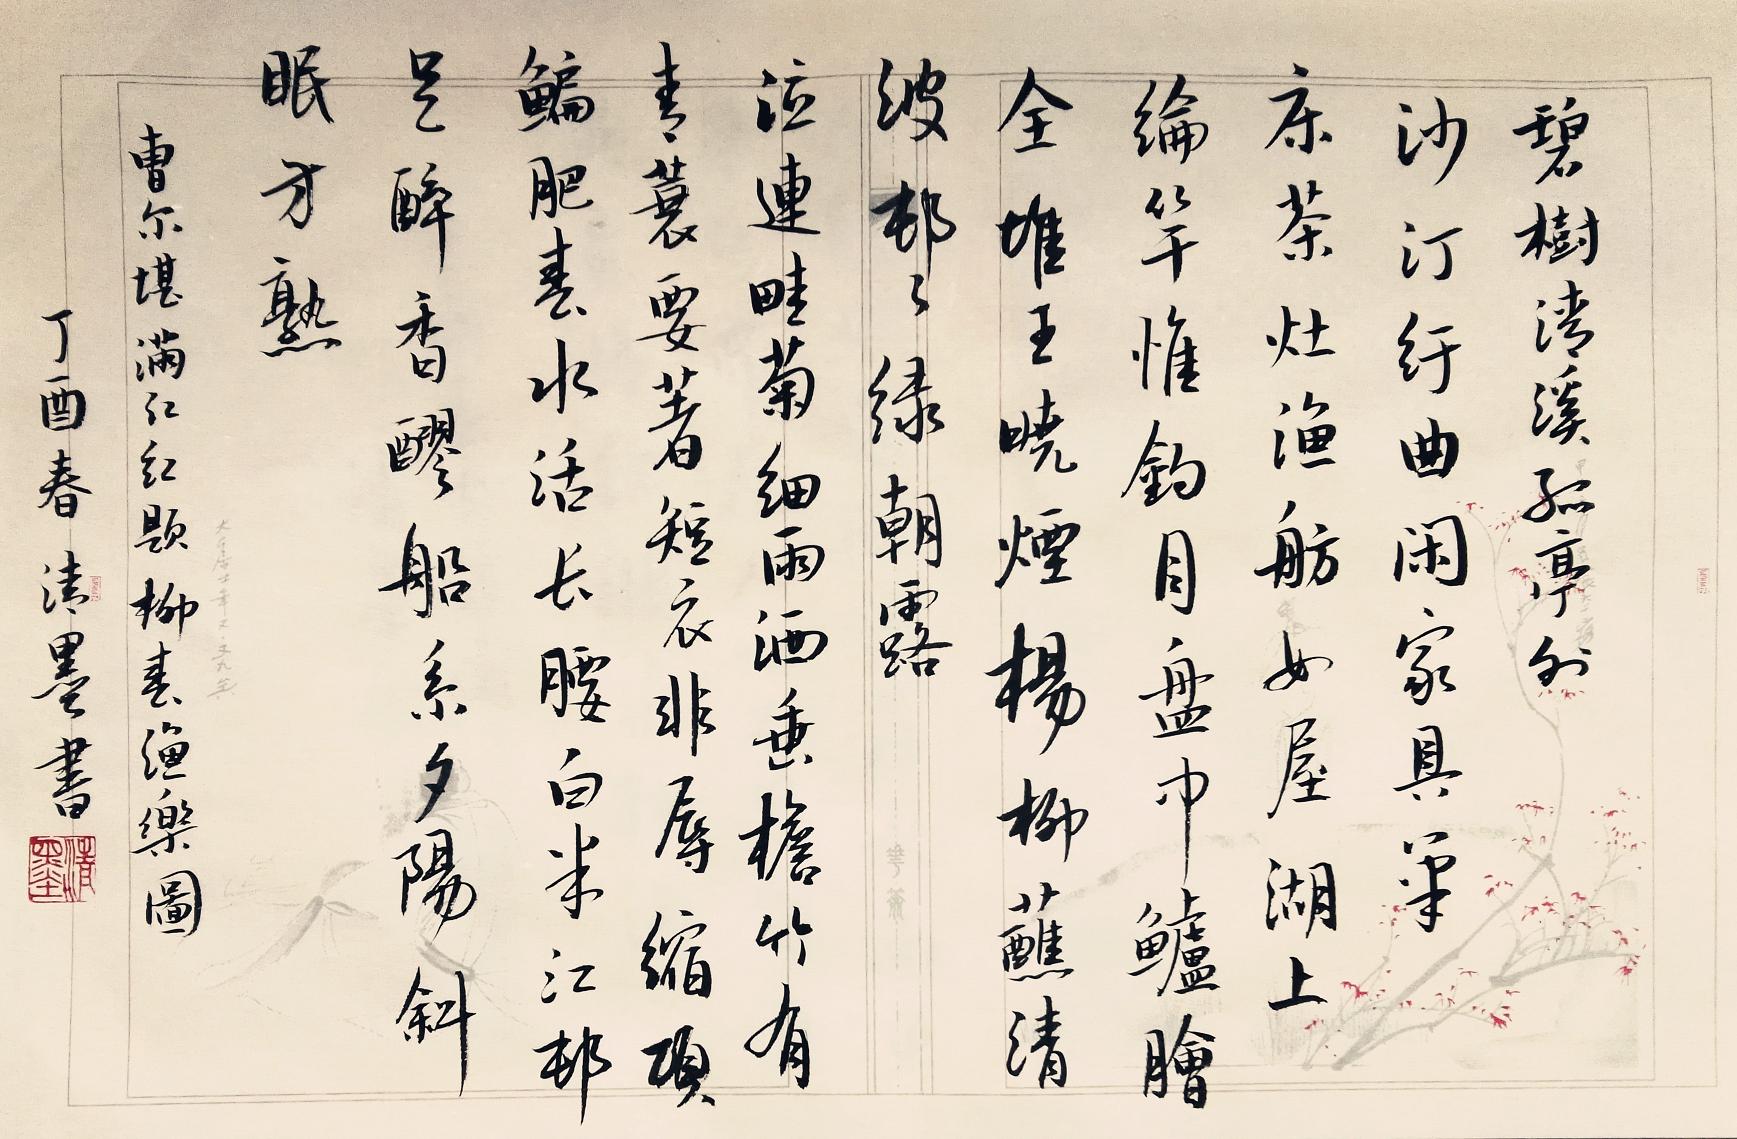 碧樹清溪孤亭外
沙汀紆曲闲家具筆
床茶灶渔舫如屋湖上
綸竿惟釣目盤巾鱸膾
全堆玉曉煙楊柳蘸清
波邨〻绿朝露
泣連畦菊细雨洒垂檐竹有
青蓑要著短衣非辱縮項
鳊肥春水活长腰白米江邨
足醉香醪船系夕陽斜
眠方熟
曹尔堪满江红题柳春漁樂圖
丁酉春清墨書
清墨